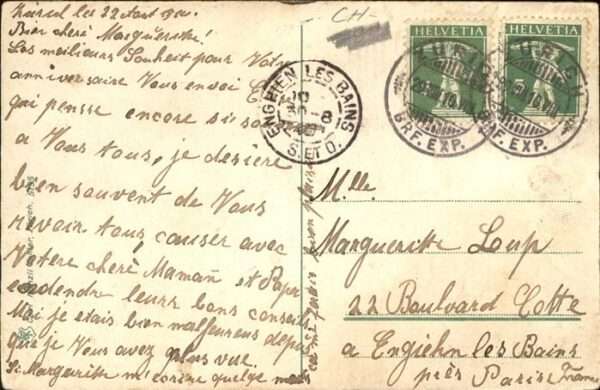 Zürich les 22 Aout 1910.
Bien cheré Margueritte!
Les meilieurs Souheit pour Votre
anniversaire Vous envoi
qui pensse encore si sou
a Vous tous, je desiere
bien souvent de Vous
revoir tous causer avec
Votere cheré Maman et Papa
endendre leurs bons conseils
Mai je etais bien malheureus depuis
que je Vous avez plus vue.
Si Margueritte m'ecrire quelge mots
ca me
CH-
ENGHIEN LES BAINS
8
S. ET O.
HELVETIA
5
HELVETIA
5
ZÜRICH
BRF. EXP.
ZÜRICH
BRF. EXP.
Mlle.
Margueritte Loup
22 Boulvard Cotte
a Engiehn les Bains
près Paris France